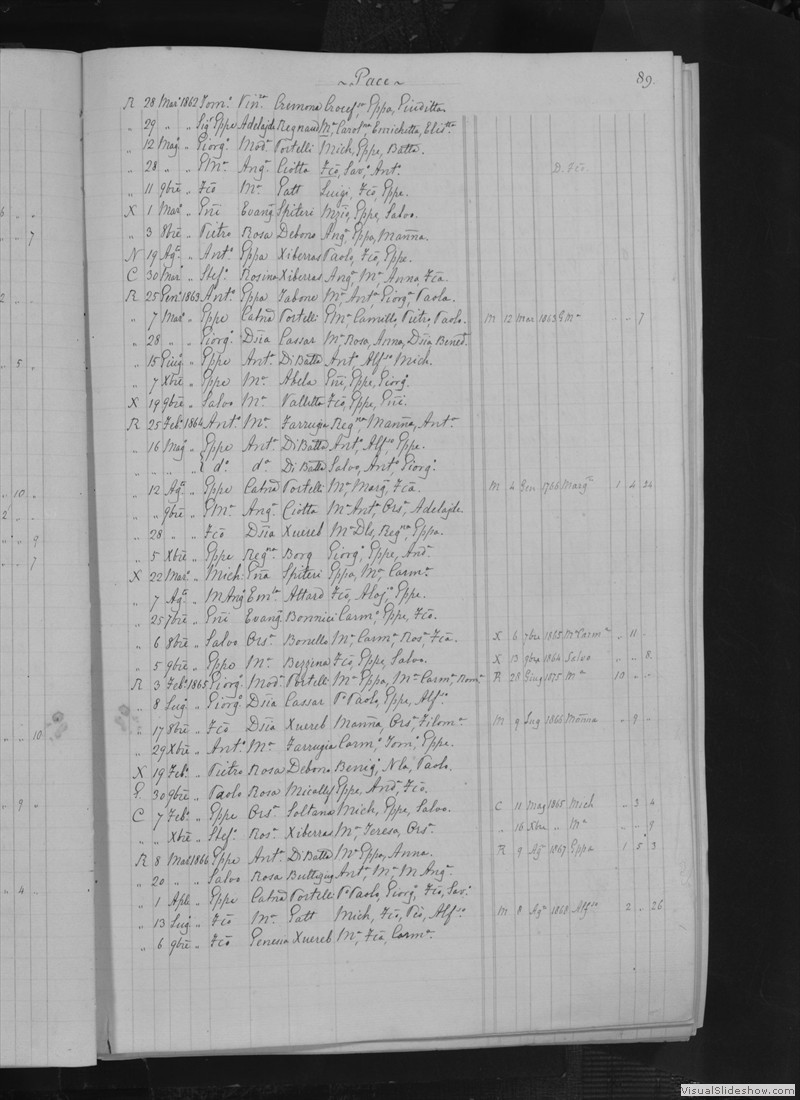 ~ Pace ~ 89.
R 28 Marº 1862 Tomº Vinza Cremona Crocefsa, Eppa, Giuditta
„ 29 „ „ Sigr Eppe Adelajde Regnaud Mª Carolna Enrichetta, Elistta
„ 12 Magº „ Giorgº Modª Portelli Mich, Eppe, Batta.
„ 28 „ „ GMª Angª Ciotta Fcõ, Savº, Antº D. Fcõ
„ 11 9bre „ Fcõ Mª Gatt Luigi, Fcõ, Eppe.
X 1 Marº „ Gñi Evangª Spiteri Eppe, Salvo.
„ 3 8bre „ Pietro Rosa Debono Angª, Eppa, Manña.
N 19 Agto „ Antº Eppa Xiberras Paolo, Fcõ, Eppe.
C 30 Marº „ Stefº Rosina Xiberras Angª, Mª, Anna, Fca.
R 25 Genº 1863 Antº Eppa Tabone Mª, Antª, Giorgª, Paola.
„ 7 Marº „ Eppe Catnã Portelli GMª, Camillo, Pietro, Paolo. M 12 Mar 1863 GMª „ „ 7
„ 28 „ „ Giorgº Dsia Cassar Mª, Rosa, Anna, Dsia Benedª
„ 15 Giugº „ Eppe Antª DiBatta Antº, Alfso, Mich.
„ 7 Xbre „ Eppe Mª Abela Gñi, Eppe, Giorgº.
X 19 9bre „ Salvo Mª Valletta Fcõ, Eppe, Gñi.
R 25 Febº 1864 Antº Mª Farrugia Regna, Manña, Antª
„ 16 Magº „ Eppe Antª DiBatta Antº, Alfso, Eppe.
„ „ „ „ dº dª DiBatta Salvo, Antº, Giorgº.
„ 12 Agto „ Eppe Catnã Portelli Mª, Margª, Fca. M 4 Gen 1766 Margta 1 4 24
„ „ 9bre „ GMª Angª Ciotta Mª Antª, Orsª, Adelajde
„ 28 „ „ Fcõ Dsia Xuereb Mª Dls, Regna, Eppa.
„ 5 Xbre „ Eppe Regna Borg Giorgº, Eppe, Andª
X 22 Marº „ Mich Gña Spiteri Eppa, Mª Carmª
„ 7 Agto „ MAngº Emla Attard Fcõ, Alojº, Eppe.
„ 25 7bre „ Gñi Evangª Bonnici Carmº, Eppe, Fcõ.
„ 6 8bre „ Salvo Orsª Bonello Mª, Carmª, Rosª, Fca. X 6 7bre 1865 Mª Carmª „ 11 „
„ 5 9bre „ Eppe Mª Bezzina Fcõ, Eppe, Salvo. X 13 9bre 1864 Salvo „ „ 8
R 3 Febº 1865 Giorgº Modª Portelli Mª Eppa, Mª Carmª, Romª R 28 Giug 1875 Mª 10 „ „
„ 8 Lugº „ Giorgº Dsia Cassar Pº Paolo, Eppe, Alfso
„ 17 8bre „ Fcõ Dsia Xuereb Manña, Orsª, Filomª M 9 Lug 1866 Manna „ 9 „
„ 29 Xbre „ Antº Mª Farrugia Carmº, Tomº, Eppe.
X 19 Febº „ Pietro Rosa Debono Benigº, Nla, Paolo.
G. 30 9bre „ Paolo Rosa Micallef Eppe, Andª, Fcõ.
C 7 Febº „ Eppe Orsª Soltana Mich, Eppe, Salvo. C 11 Mag 1865 Mich „ 3 4
„ „ Xbre „ Stefº Rosª Xiberras Mª, Teresa, Orsª „ 16 Xbre „ Mª „ „ 9
R 8 Mar 1866 Eppe Antª DiBatta Mª Eppa, Anna. R 9 Agto 1867 Eppa 1 5 3
„ 20 „ „ Salvo Rosa Buttigieg Antª, Mª, M Angª
„ 1 Aple „ Eppe Catnã Portelli Pº Paolo, Giorgº, Fcõ, Savº
„ 13 Lugº „ Fcõ Mª Gatt Mich, Fcõ, Pio, Alfso M 8 Agto 1868 Alfso 2 „ 26
„ 6 9bre „ Fcõ Genesia Xuereb Mª, Fca, Carmª
6 „ „
„ „ 7
2 „ „
„ 5 „
„ 10 „
2 „ „
„ „ 9
„ „ 7
„ „ 10
„ 9 „
„ 4 „
VisualSlideshow.com